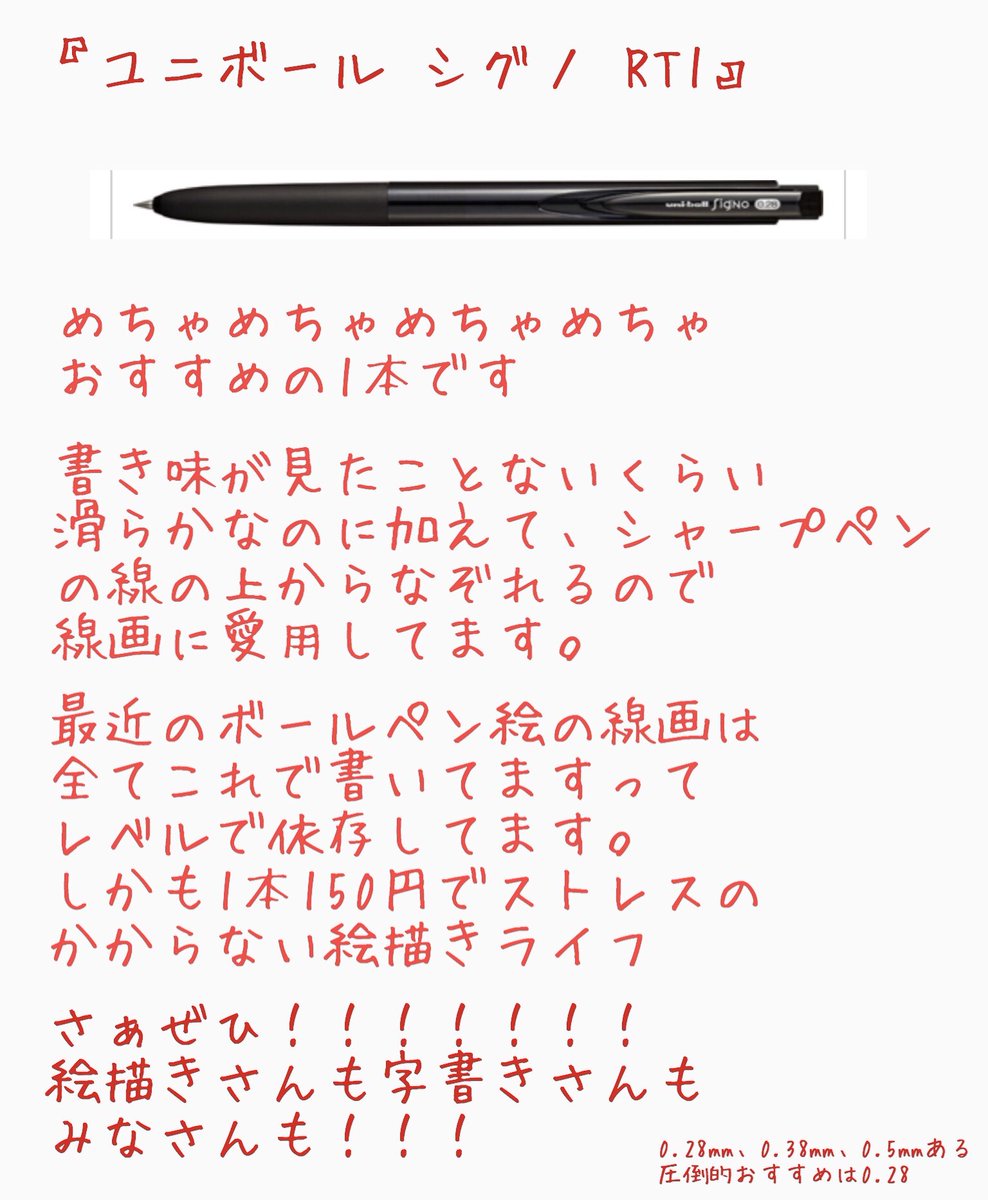 『ユニボール シグノ RT1』
uni-ball SigNO 0.28
めちゃめちゃめちゃめちゃ
おすすめの1本です
書き味が見たことないくらい
滑らかなのに加えて、シャープペン
の線の上からなぞれるので
線画に愛用してます。
最近のボールペン絵の線画は
全てこれで書いてますって
レベルで依存してます。
しかも1本150円でストレスの
かからない絵描きライフ
さぁぜひ！！！！！！！
絵描きさんも字書きさんも
みなさんも！！！
0.28mm、0.38mm、0.5mmある
圧倒的おすすめは0.28